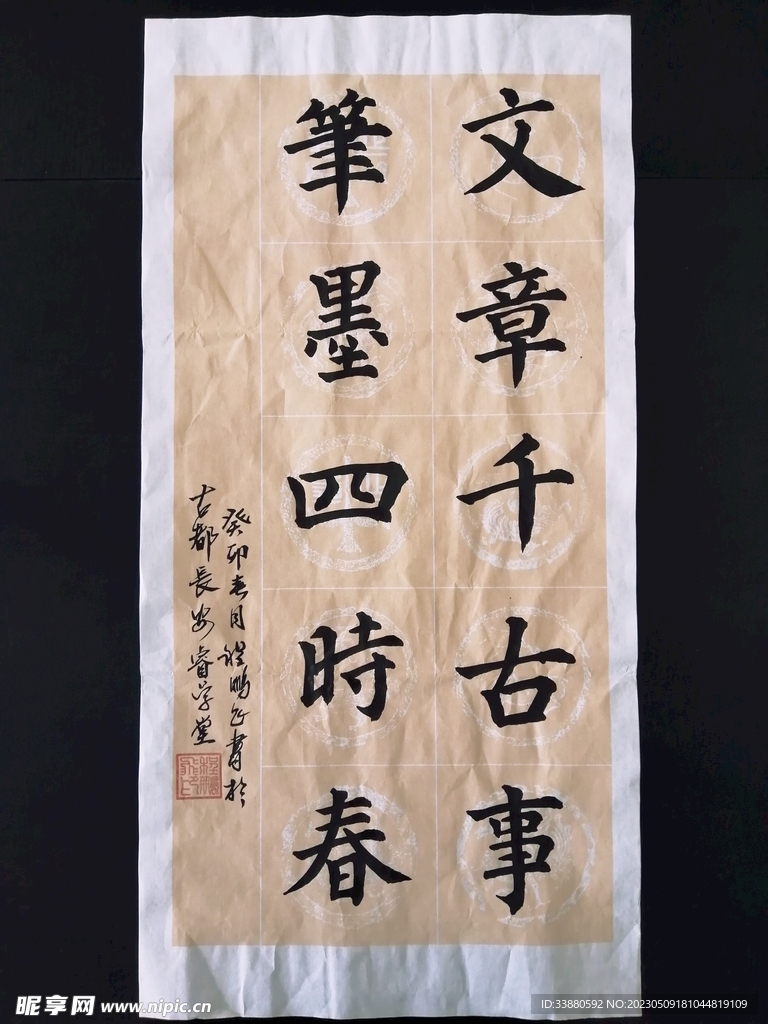 文章千古事
筆墨四時春
癸卯春月程鹏飞書於
古都長安睿学堂
昵享网 www.nipic.cn
ID:33880592 NO:20230509181044819109